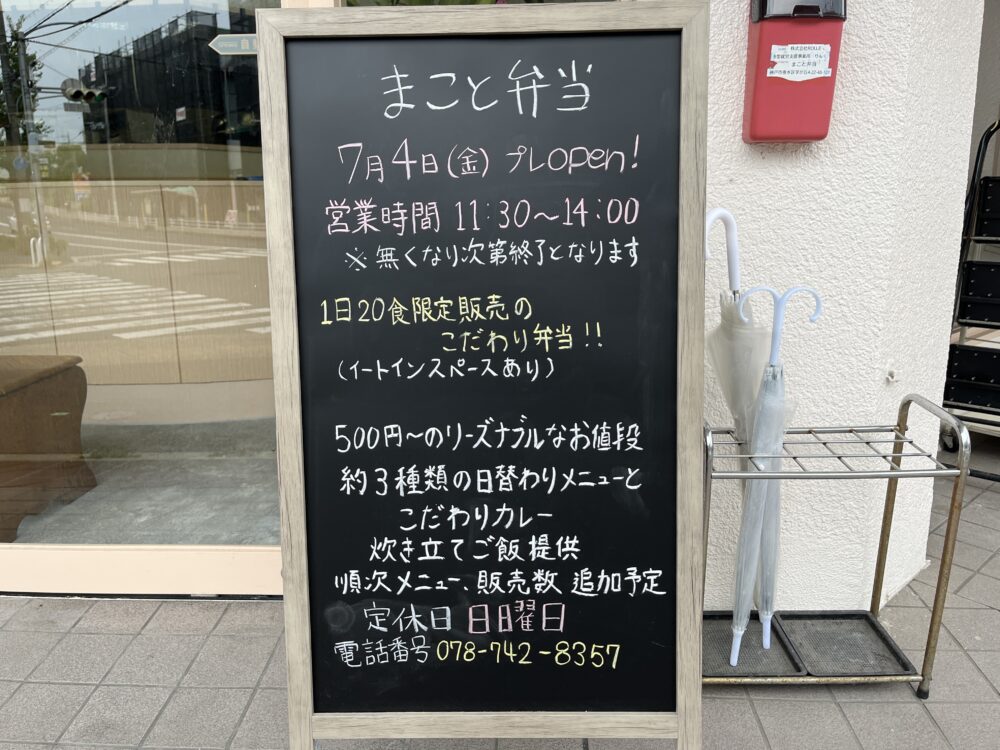 まこと弁当
7月4日(金) プレopen!
営業時間 11:30〜14:00
※無くなり次第終了となります
1日20食限定販売の
こだわり弁当!!
(イートインスペースあり)
500円〜のリーズナブルなお値段
約3種類の日替わりメニューと
こだわりカレー
炊き立てご飯提供
順次メニュー、販売数 追加予定
定休日 日曜日
電話番号 078-742-8357
株式会社ROLLE
まこと弁当